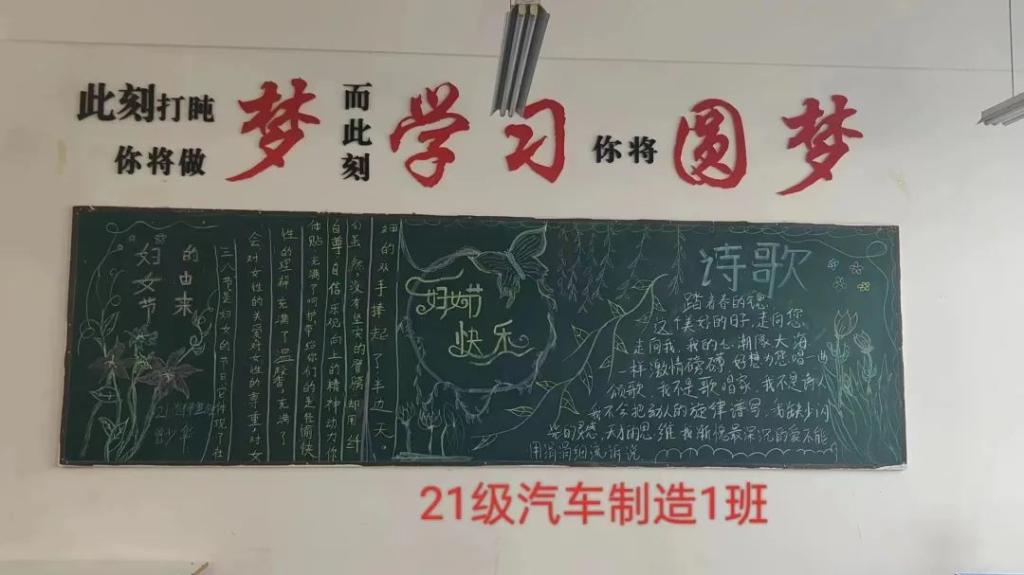 此刻打盹
你将做
梦
而此刻
学习
你将
圆梦
妇女节
的由来
三八节是妇女的节日它体现了社
会对女性的关爱对女性的尊重,对女
性的理解充满了温馨充满了
体贴充满了呵护带给你们的是些愉快
自尊自信乐观向上的精神动力你
们虽然没有坚实的臂膀却用纤
细的双手捧起了半边天。
妇女节
快乐
诗歌
踏着春的
这个美好的日子,走向您
走向我,我的心潮像大海
一样激情磅礴 好想为您唱一曲
颂歌 我不是歌唱家 我不是诗人
我不会把动人的旋律谱写,我缺少闪
光的灵感 天才的思维 我渐
用涓涓细流诉说
21级汽车制造1班